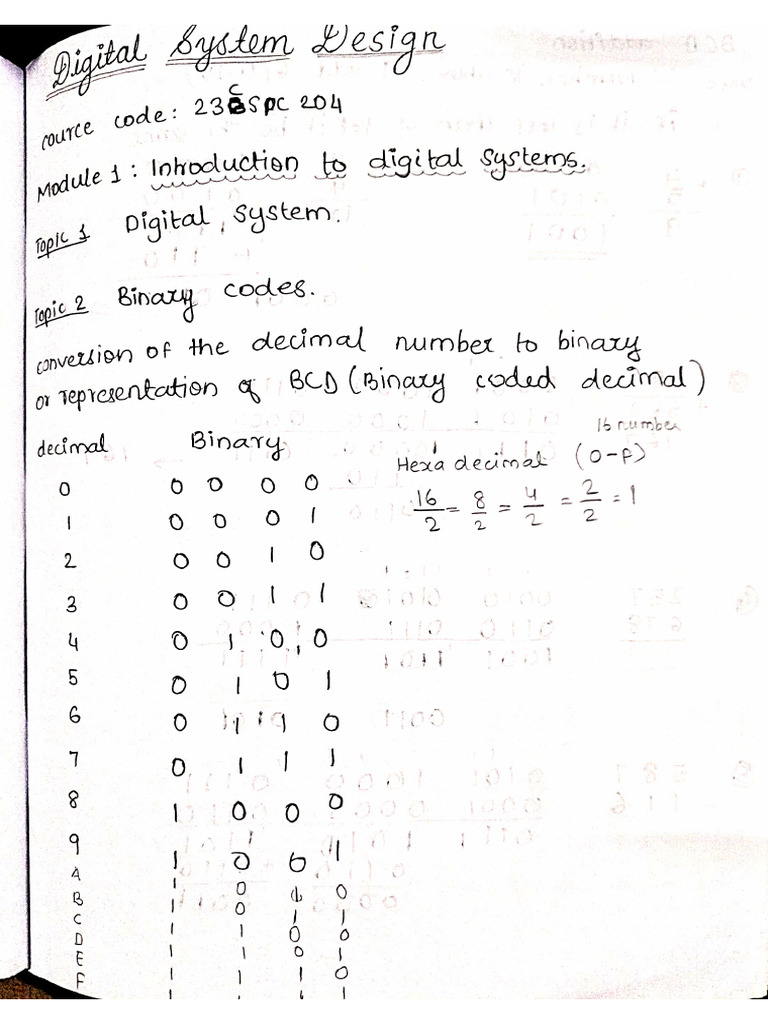 Digital System Design
cource code: 23CSPC204
Module 1: Introduction to digital systems.
Topic 1 Digital System.
Topic 2 Binary codes.
conversion of the decimal number to binary
or representation of BCD (Binary coded decimal)
decimal Binary
16 number
Hexa decimal (0-F)
16/2 = 8/2 = 4/2 = 2/2 = 1
0 0 0 0 0
1 0 0 0 1
2 0 0 1 0
3 0 0 1 1
4 0 1 0 0
5 0 1 0 1
6 0 1 1 0
7 0 1 1 1
8 1 0 0 0
9 1 0 0 1
A 1 0 1 0
B 1 0 1 1
C 1 1 0 0
D 1 1 0 1
E 1 1 1 0
F 1 1 1 1